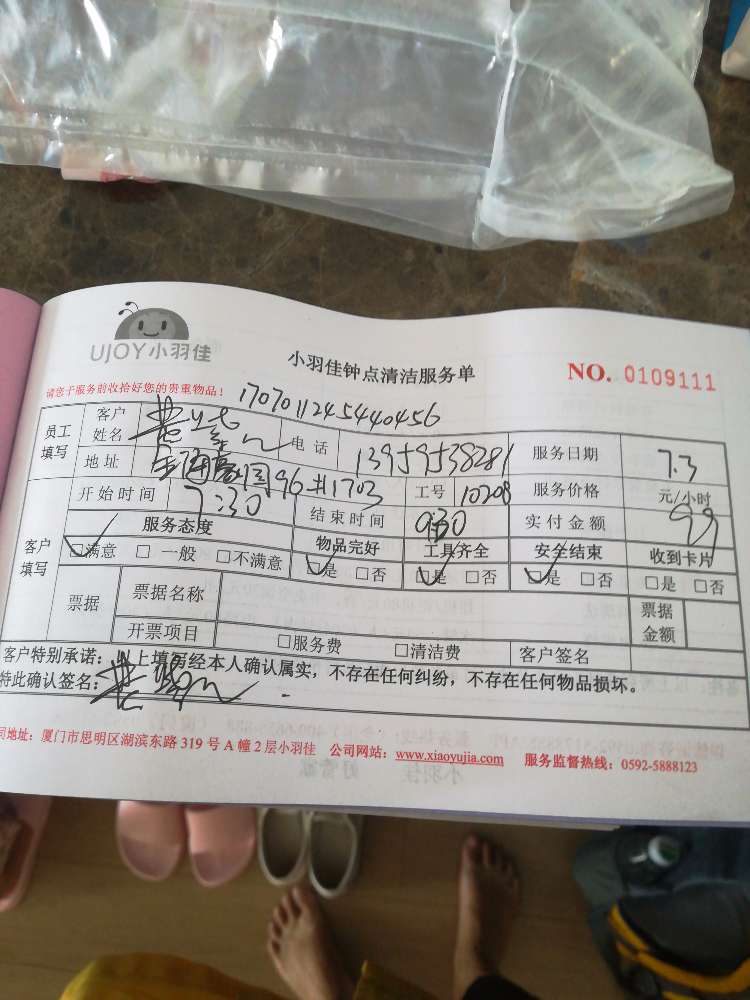 UJOY小羽佳
小羽佳钟点清洁服务单
NO. 0109111
请您于服务前收拾好您的贵重物品！
1707011245440456
员工填写 客户姓名 电话 13959538281 服务日期 7.3
地址 96#1703 工号 10208 服务价格 元/小时
开始时间 7:30 结束时间 930 实付金额 99
客户填写 服务态度 物品完好 工具齐全 安全结束 收到卡片
☑满意 □一般 □不满意 ☑是 □否 ☑是 □否 ☑是 □否 □是 □否
票据 票据名称 票据金额
开票项目 □服务费 □清洁费 客户签名
客户特别承诺：以上填写经本人确认属实，不存在任何纠纷，不存在任何物品损坏。
特此确认签名：
司地址：厦门市思明区湖滨东路 319 号 A 幢 2 层小羽佳 公司网站：www.xiaoyujia.com 服务监督热线：0592-5888123